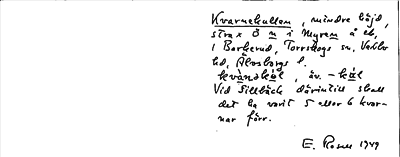 Kvarnekullen, mindre höjd,
strax Ö n i Myrem å eb,
i Borkerud, Torrskogs sn, Vedbo
hd, Älvsborgs l.
kvà̱ṇakál, äv. -kál
Vid Sillbäck därintill skall
det ha varit 5 eller 6 kvar-
nar förr.
E. Rosell 1949